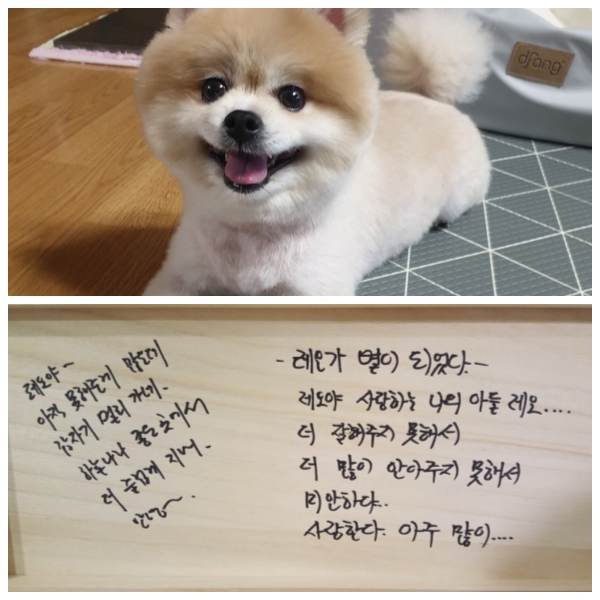 dfang
레오야~
아직 못해준게 많은데
갑자기 멀리 가네.
하늘나라 좋은곳에서
더 즐겁게 지내.
안녕~.
- 레오가 별이 되었다. -
레오야 사랑하는 나의 아들 레오....
더 잘해주지 못해서
더 많이 안아주지 못해서
미안하다..
사랑한다. 아주 많이....